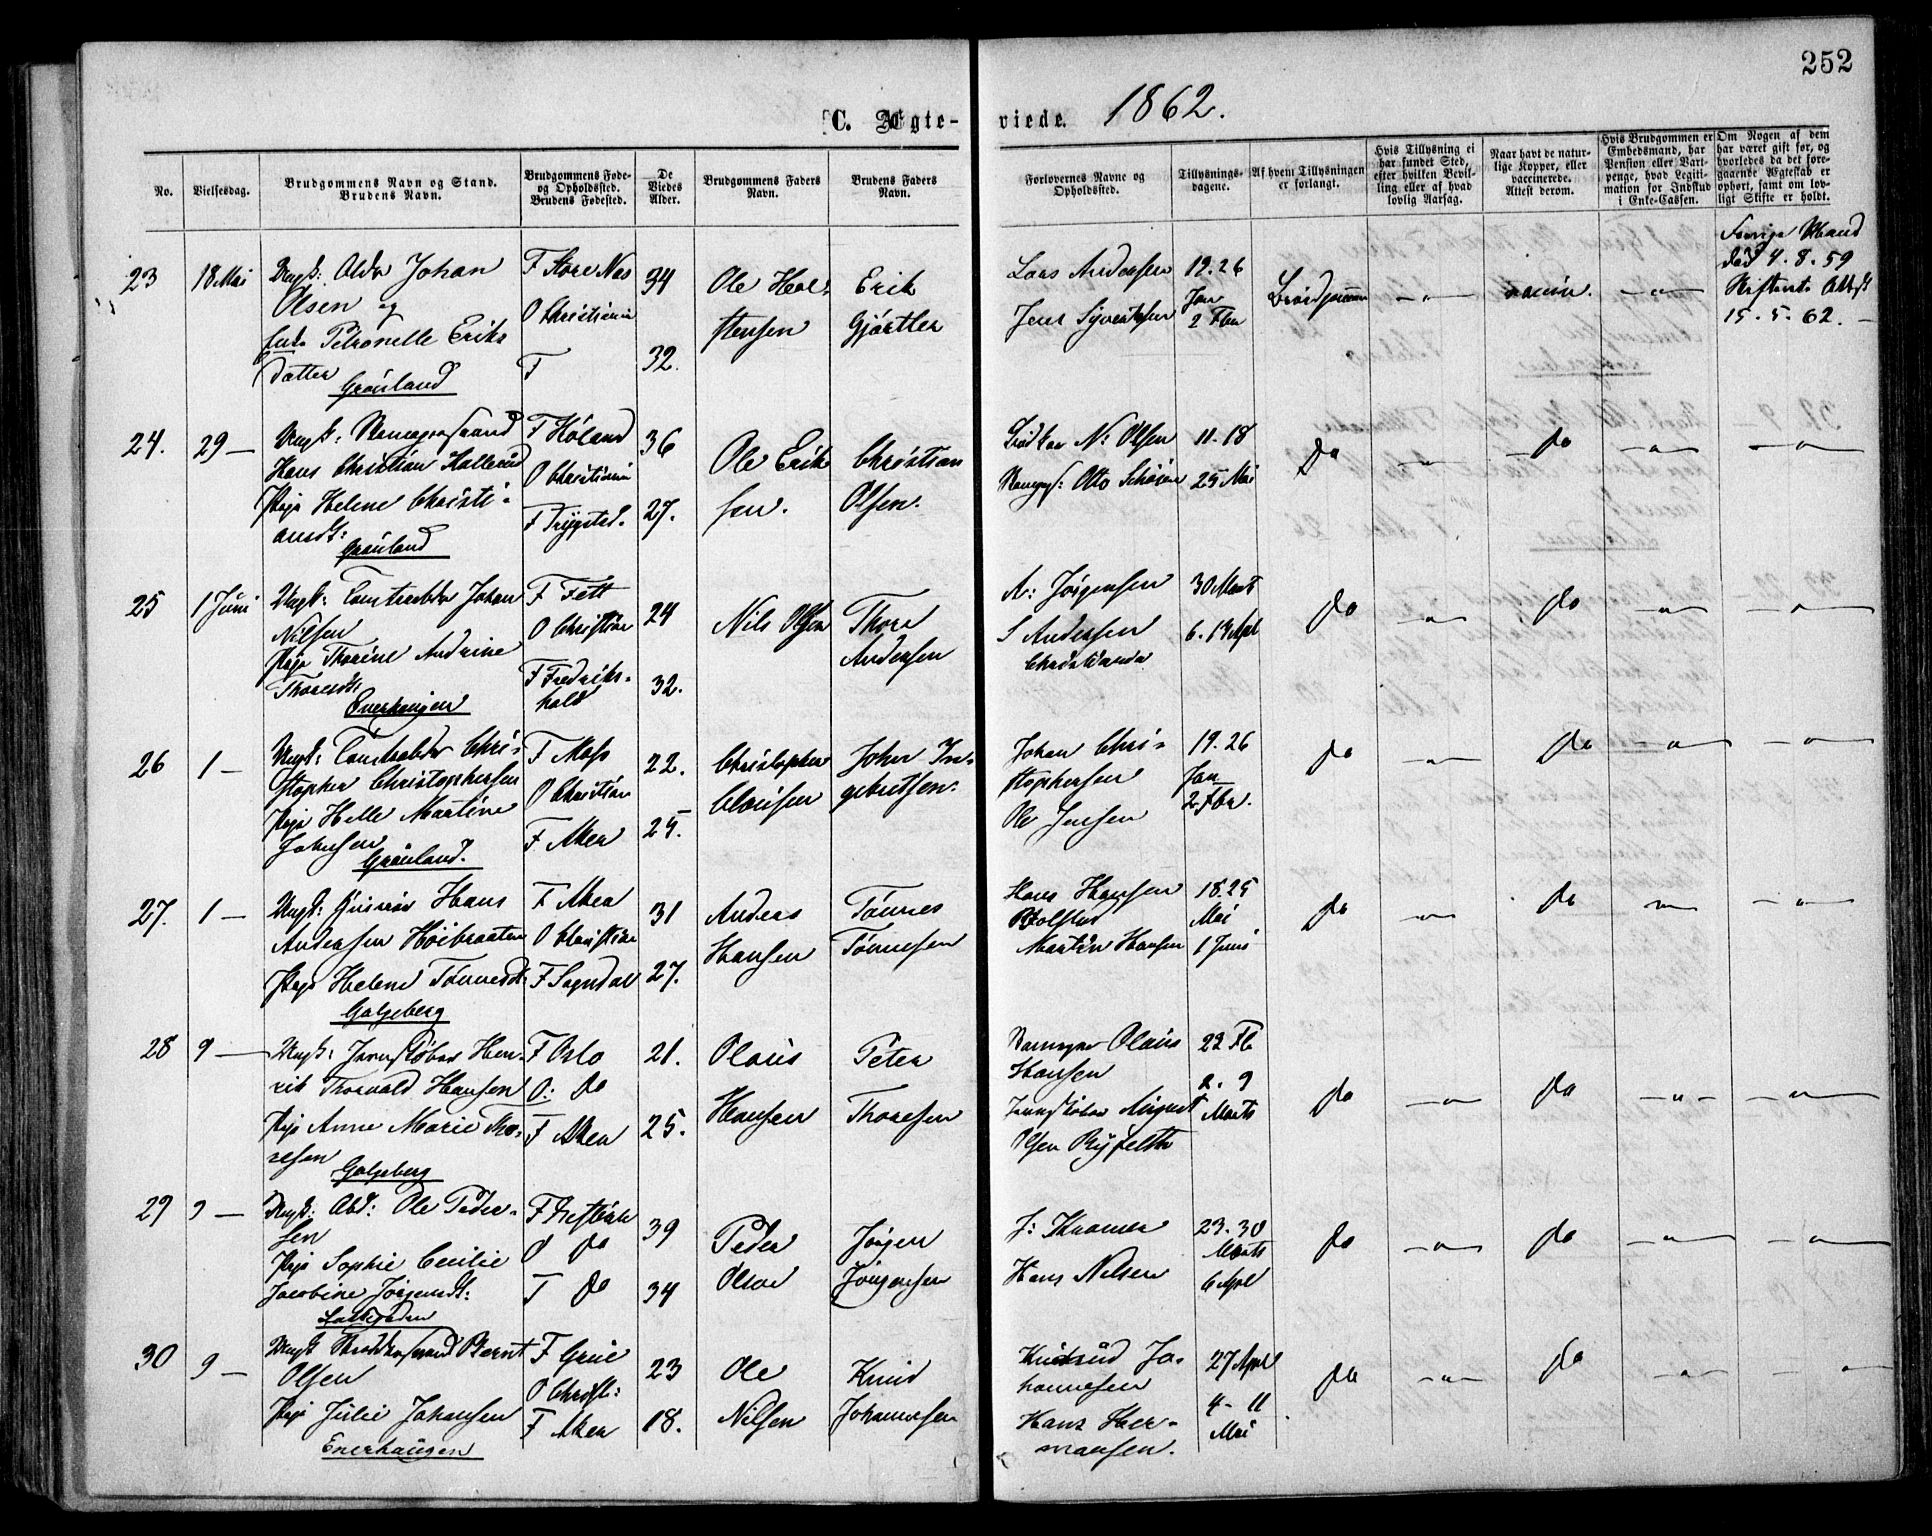 252
C. Ægte-
viede. 1862.
No.
Vielsesdag.
Brudgommens Navn og Stand.
Brudens Navn.
Brudgommens Føde-
og Opholdssted.
Brudens Fødested.
De
Viedes
Alder.
Brudgommens Faders
Navn.
Brudens Faders
Navn.
Forlovernes Navne og
Opholdssted.
Tillysnings-
dagene.
Af hvem Tillysningen
er forlangt.
Hvis Tillysning ei
har fundet Sted,
efter hvilken Bevil-
ling eller af hvad
lovlig Aarsag.
Naar havt de natur-
lige Kopper, eller
vaccinerede.
Attest derom.
Hvis Brudgommen er
Embedsmand, har
Pension eller Vart-
penge, hvad Legiti-
mation for Indskud
i Enke-Cassen.
Om Nogen af dem
har været gift før, og
hvorledes da det fore-
gaaende Ægteskab er
ophørt, samt om lov-
ligt Skifte er holdt.
23 18 Mai
Johan
Olsen og
Petronelle Eriks
datter
Grønland
F Store Nes
O Christiania
F
34
32.
Ole Hol-
stensen
Erik
Gjørtler
Lars Andersen
Jens Syvertsen
19. 26
Jan
2 Fbr
Brudgommen
vaccin.
Forrige Mand
død 4. 8. 59
Skifterets Attest
15. 5. 62.
24. 29 —
Ungk:
Hans Christian Kallerud
Pige Helene Christi-
ansdt:
Grønland
F Høland
O Christiania
F Trygstad.
36
27.
Ole Erik
sen.
Christian
Olsen.
N: Olsen
Otto
11. 18
25 Mai
Do
Do
25 1 Juni
Ungk: Johan
Nilsen
Pige Thorine Andrine
Thoresdt:
Enerhaugen
F Fett
O Christian
F Fredriks-
hald
24
32.
Nils Olsen
Thore
Andersen
A: Jørgensen
S Andersen
Christiania
30 Marts
6. 14 Apl
Do
Do
26 1 —
Ungk: Chri-
stopher Christophersen
Pige Helle Martine
Johnsen
Grønland.
F Moss
O Christian
F Aker
22.
25.
Christopher
Clausen
John In-
gebretsen.
Johan Chri-
stophersen
Ole Jensen
19. 26
Jan
2 Fbr.
Do
Do
27. 1 —
Ungk: Hans
Andersen Høibraaten
Pige Helene Tønnesdt:
Galgeberg
F Aker
O Christian
F Sogndal
31
27.
Anders
Hansen
Tønnes
Tønnesen
Hans Hansen
Bolstad
Martin Hansen
18. 25
Mai
1 Juni
Do
Do
28 9 —
Ungk: Jernstøber Hen-
rik Thorvald Hansen
Pige Anne Marie Tho-
resen
Galgeberg
F Oslo
O: Do
F Aker
21.
25.
Olaus
Hansen
Peter
Thoresen
Olaus
Hansen
Jernstøber August
Olsen
23 Fb
2. 9
Marts
Do
Do
29 9 —
Ungk: Abd: Ole Peder-
sen
Pige Sophie Cecilie
Jacobine Jørgensdt:
O Do
F Do
39
34
Peder
Olsen
Jørgen
Jørgensen
J: Kramer
Hans Nilsen
23. 30
Marts
6 Apl
Do
Do
30 9 —
Ungk Bernt
Olsen
Pige Julie Johansen
Enerhaugen
F Grue
O Christi:
F Aker
23
18.
Ole
Nilsen
Knud
Johannesen
Knud Jo-
hannesen
Hans Her-
mansen.
27 Apl
4 - 11
Mai
Do
Do